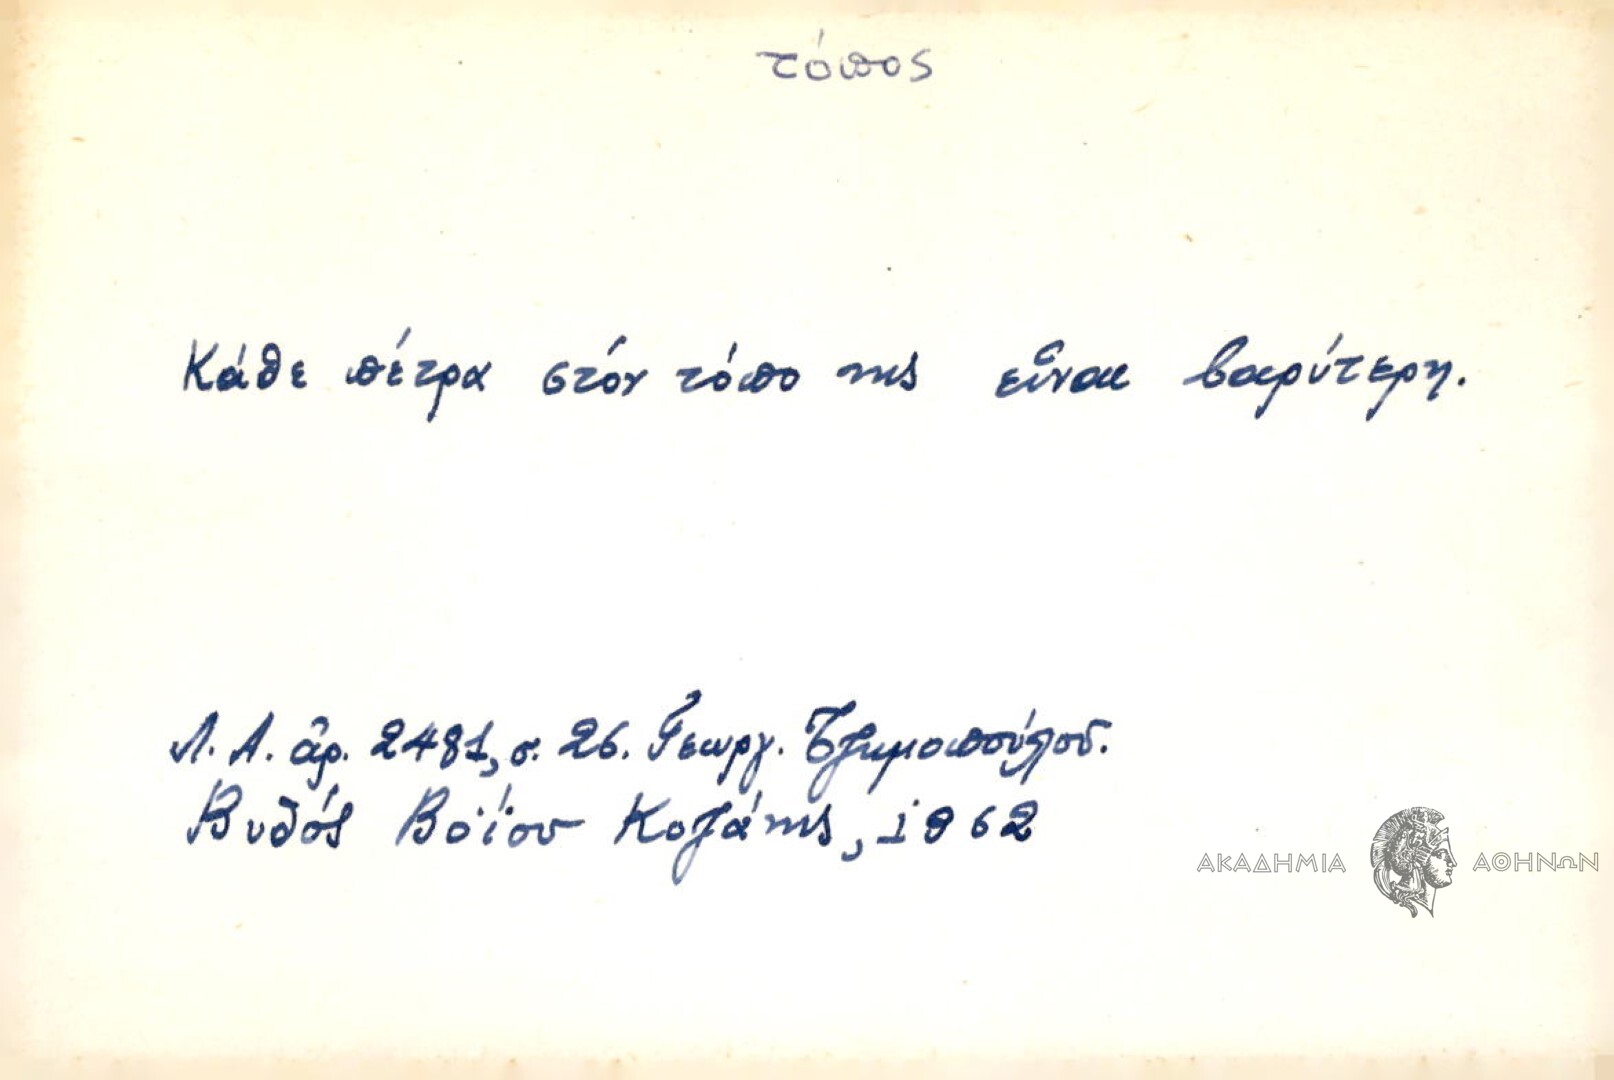 τόπος
Κάθε πέτρα στόν τόπο της εἶναι βαρύτερη.
Λ. Α. ἀρ. 2481, σ. 26. Γεωργ. Τζημοπούλου.
Βυθός Βοΐου Κοζάνης, 1962
ΑΚΑΔΗΜΙΑ ΑΘΗΝΩΝ